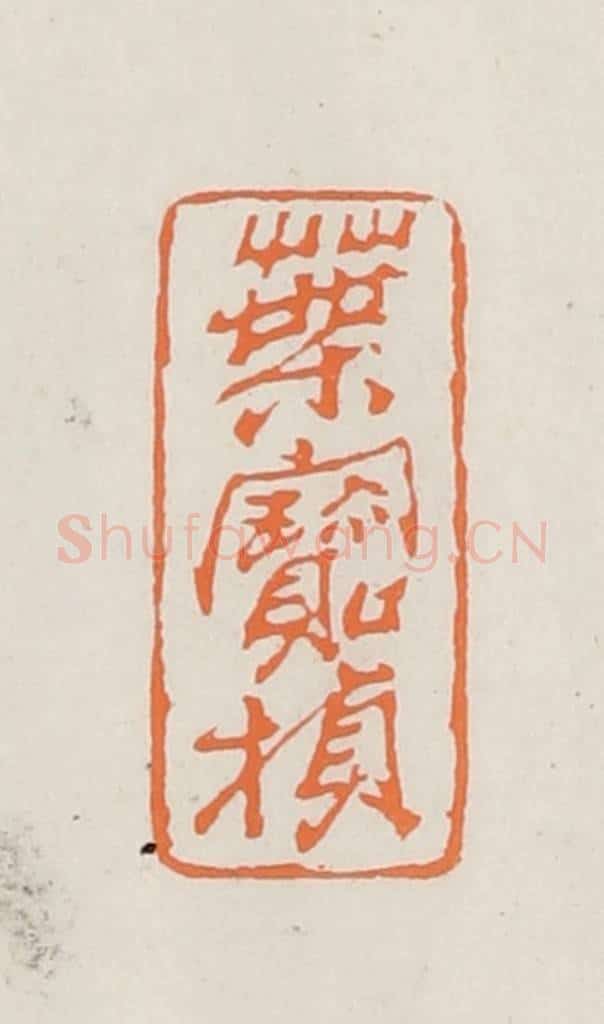 葉
寶
楨
Shufawang.CN